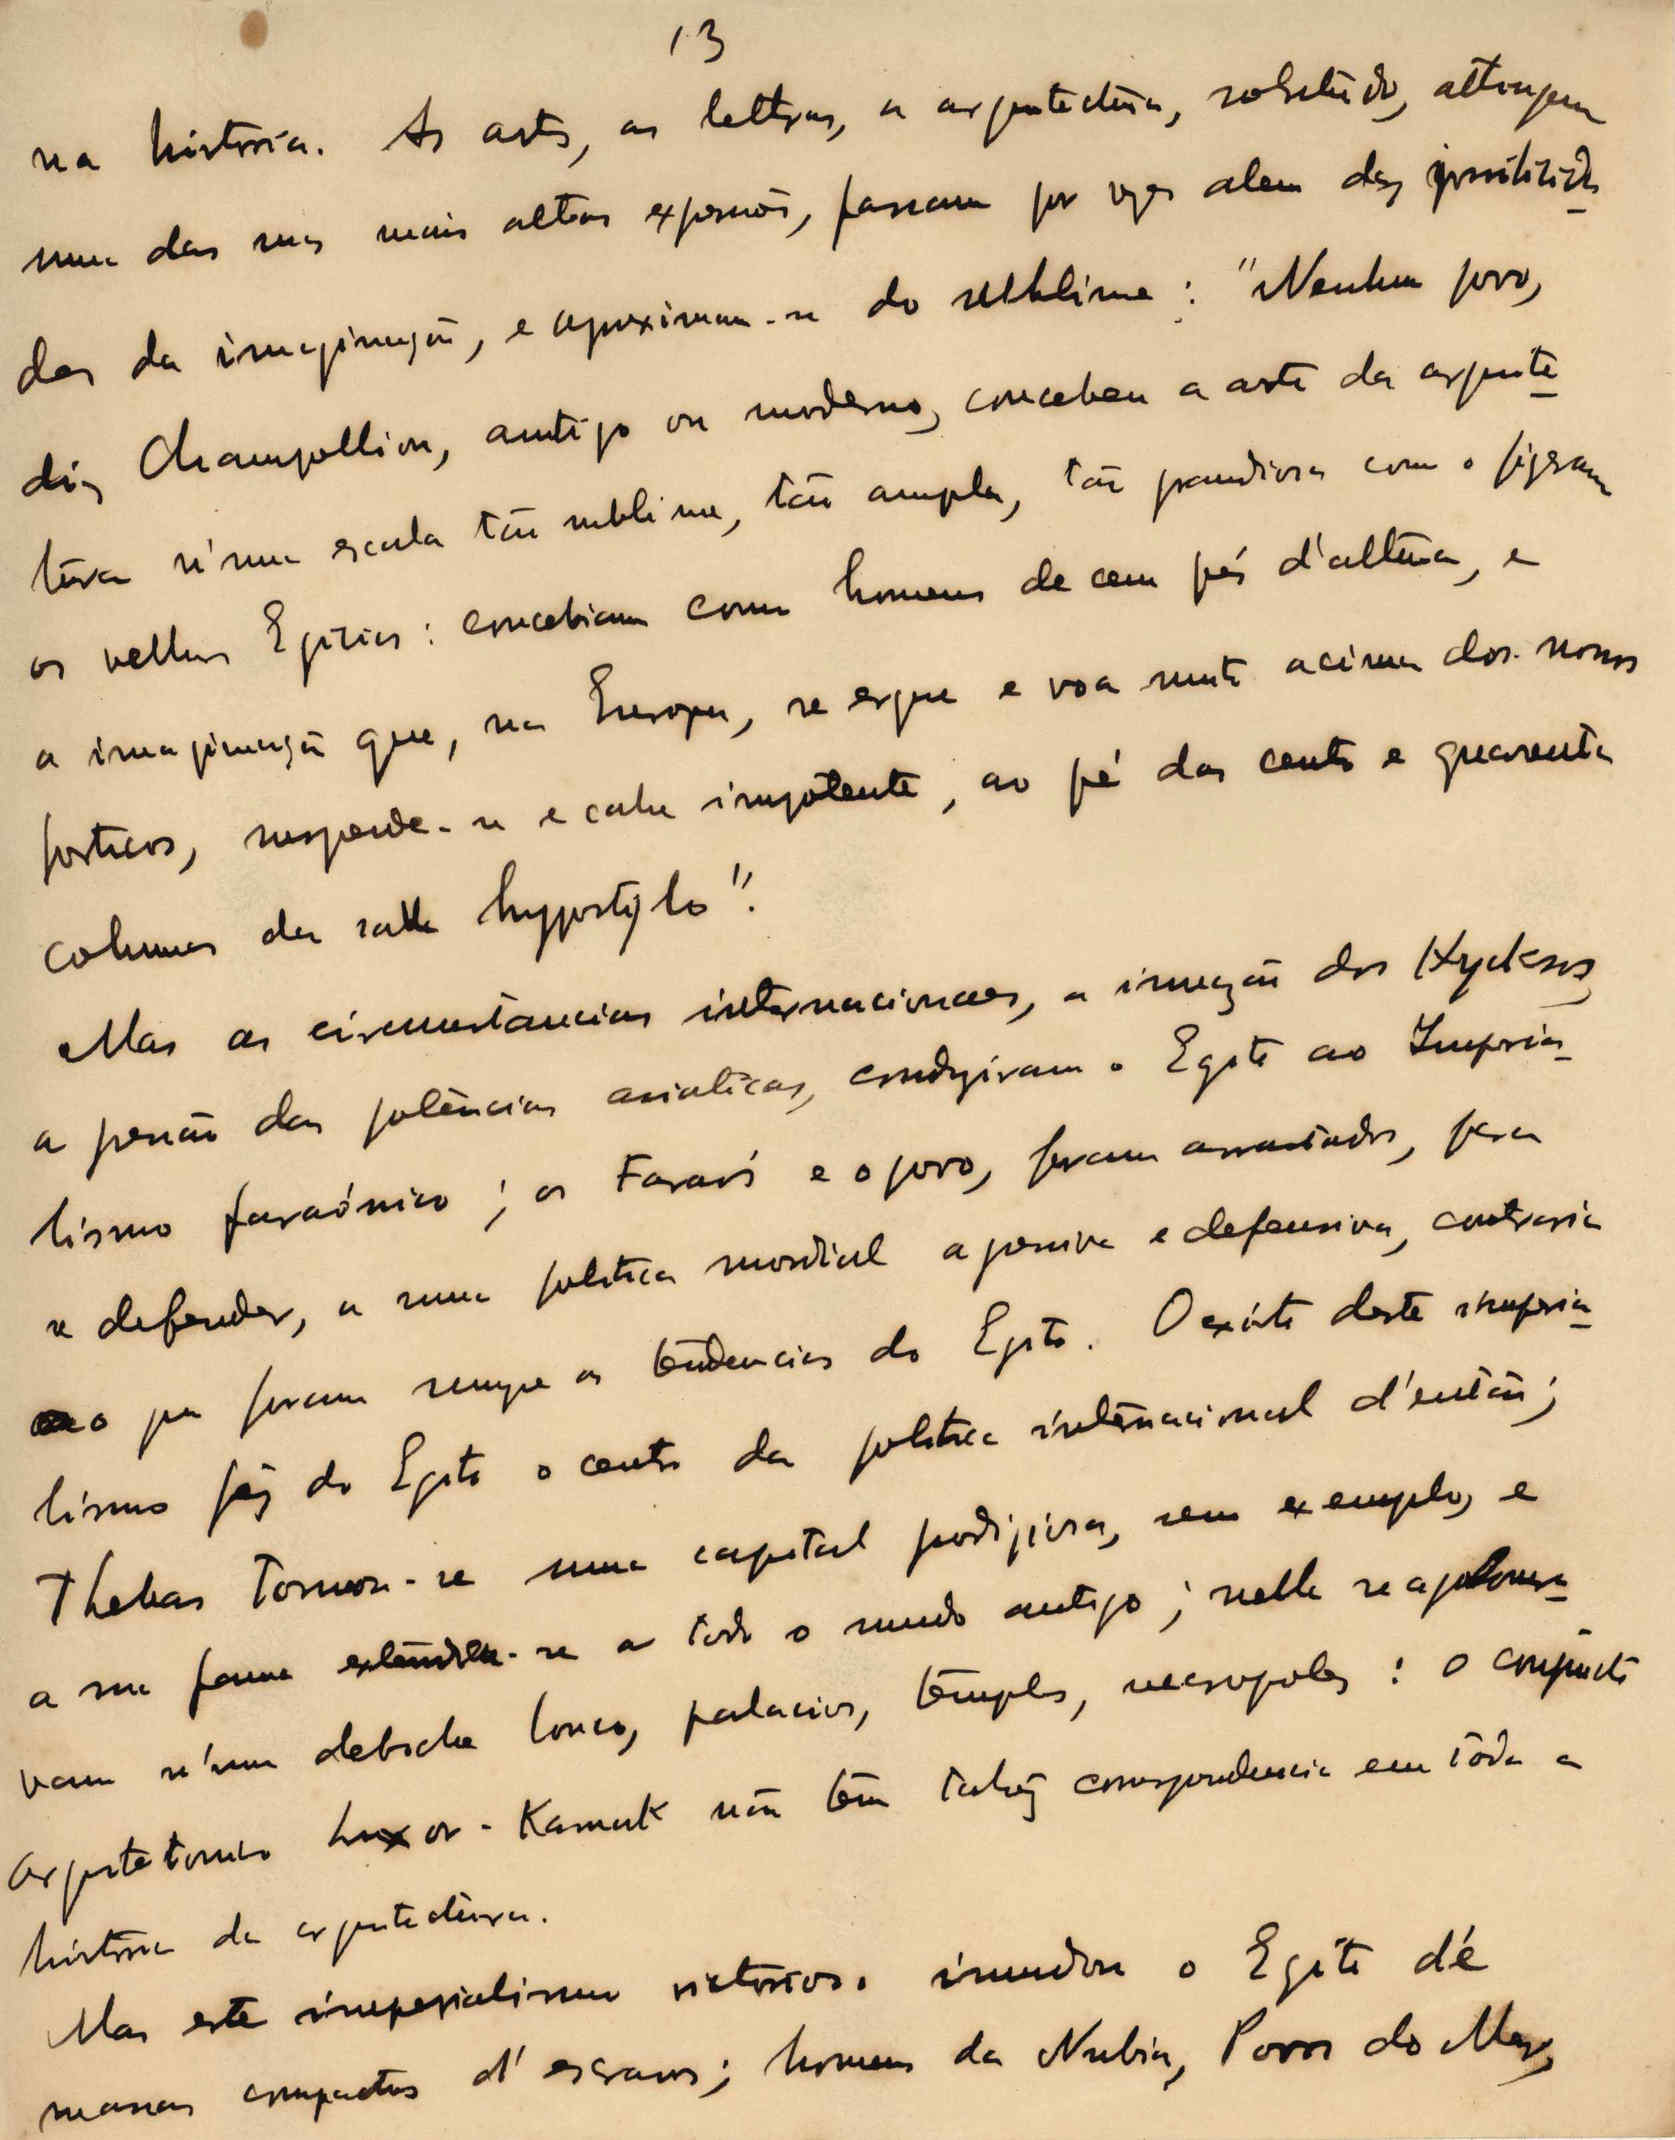 13
na historia. As artes, as lettras, a arquitectura, sobretudo, attingem
uma das suas mais altas expressões, passam por vezes alem das possibilida
des da imaginação, e aproximam-se do sublime: "Nenhum povo,
diz Champollion, antigo ou moderno, concebeu a arte da arquite
tura n'uma escala tão sublime, tão ampla, tão grandiosa como o fizeram
os velhos Egicios: concebiam como homens de cem pés d'altura, e
a imaginação que, na Europa, se ergue e voa muito acima dos nossos
porticos, suspende-se e cahe impotente, ao pé das cento e quarenta
columnas da salla hypostyla".
Mas as circumstancias internacionaes, a invazão dos Hycksos,
a pressão das potências asiaticas, conduziram o Egito ao Imperia-
lismo faraónico; os Faraós e o povo, foram arrastados, para
se defender, a uma politica mundial agressiva e defensiva, contraria
ao que foram sempre as tendencias do Egito. O exito deste imperia-
lismo fêz do Egito o centro da politica internacional d'então;
Thebas tornou-se uma capital prodigiosa, sem exemplo, e
a sua fama extendeu-se a todo o mundo antigo; nella se aglomera-
vam n'um deboche louco, palacios, templos, necropoles: o conjuncto
arquitetonico Luxor-Karnak não tem talvez correspondencia em toda a
história da arquitectura.
Mas este imperialismo victorioso inundou o Egito dé
massas compactas d'escravos; homens da Nubia, Povos do Mar,